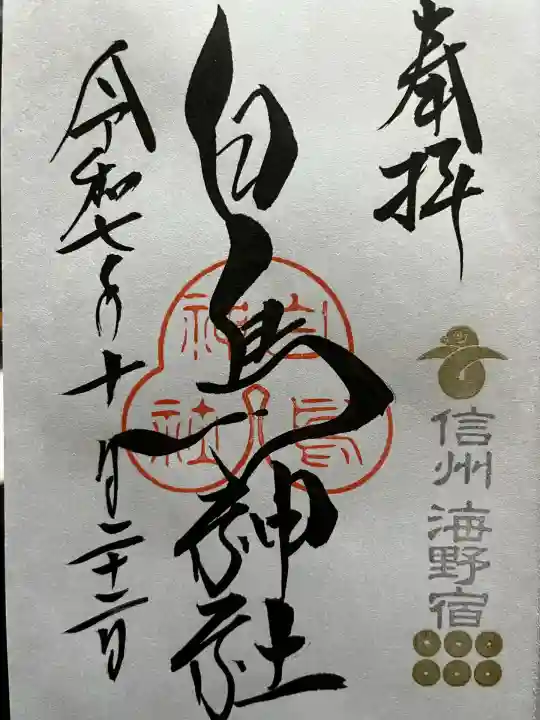 奉拝
信州 海野宿
白鳥神社
白鳥神社
令和七年十月二十二日